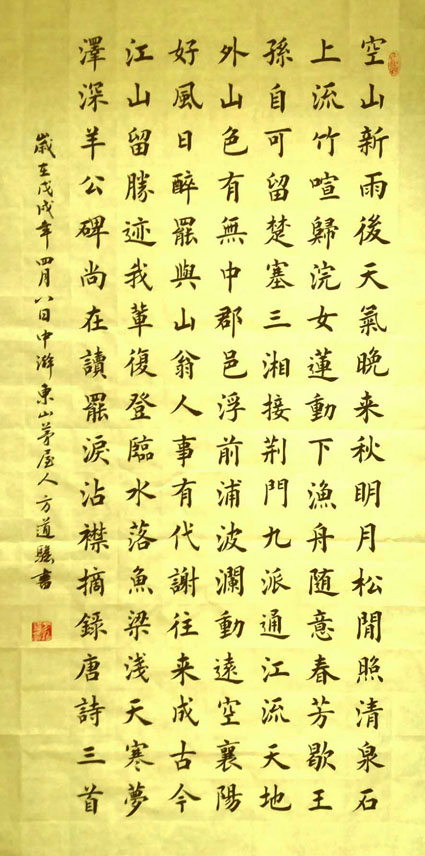 空山新雨後天氣晚来秋明月松閒照清泉石
上流竹喧歸浣女蓮動下漁舟随意春芳歇王
孫自可留楚塞三湘接荆門九派通江流天地
外山色有無中郡邑浮前浦波瀾動遠空襄陽
好風日醉罷與山翁人事有代謝往来成古今
江山留勝迹我輩復登臨水落魚梁浅天寒夢
澤深羊公碑尚在讀罷淚沾襟摘録唐詩三首
歲在戊戌年四月八日中澣東山茅屋人方道書